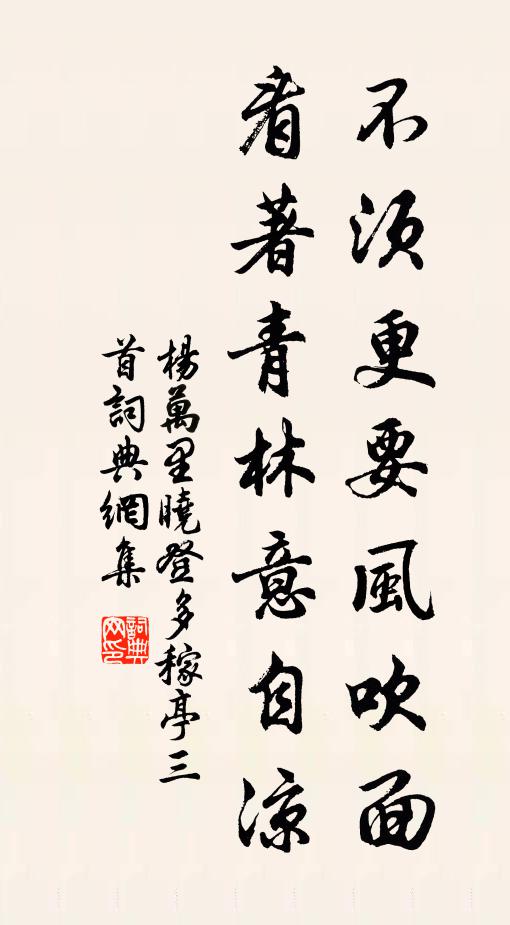 不須更要風吹面
看著青林意自涼
楊萬里曉登多稼亭三
首詞典網集
詞典網印